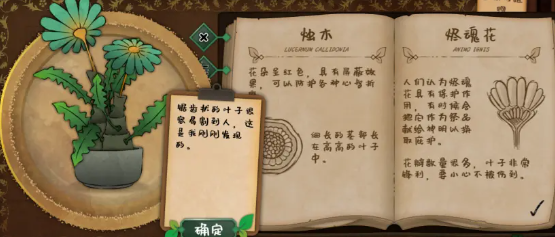 锯齿状的叶子很
容易割到人，这
是我刚刚发现
的。
确定
烛木
LUCEANUM CALLIDONIA
花朵呈红色，具有屏蔽效
果，可以防护各种心智折
细长的茎部长
在高高的叶子
中。
烬魂花
ANIMO IGNIS
人们认为烬魂
花具有保护作
用，有时候会
把它作为祭品
献给神明以换
取庇护。
花瓣数量很多，叶子非常
锋利，要小心不被伤到。